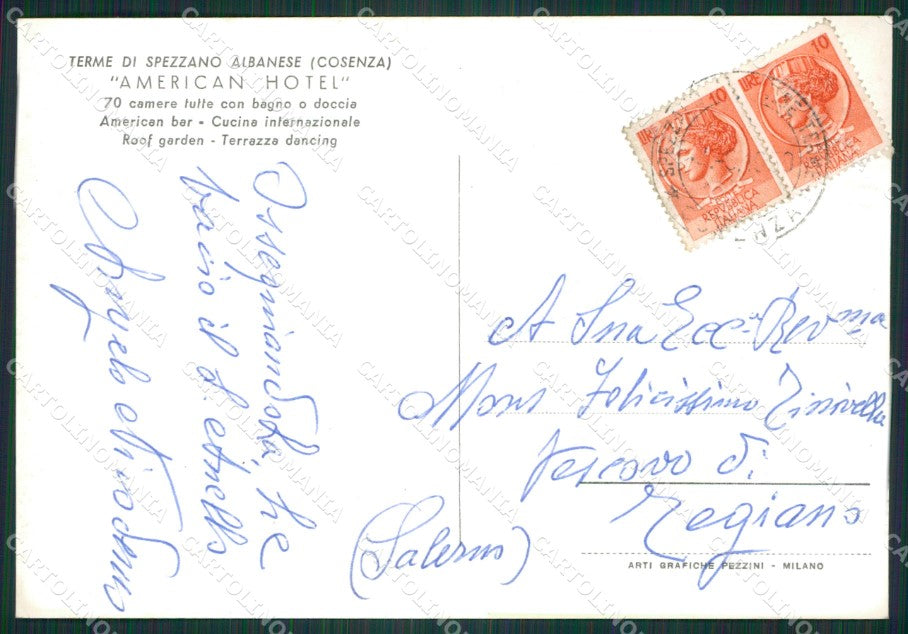 TERME DI SPEZZANO ALBANESE (COSENZA)
"AMERICAN HOTEL"
70 camere tutte con bagno o doccia
American bar - Cucina internazionale
Roof garden - Terrazza dancing
Ossequiandola, Le
bacio il S. Anello
Angelo
10
LIRE
REPUBBLICA
ITALIANA
10
LIRE
REPUBBLICA
ITALIANA
A Sua Ecc.a Rev.ma
Mons Felicissimo Tinivella
Vescovo di
Teggiano
(Salerno)
ARTI GRAFICHE PEZZINI - MILANO
CARTOLINOMANIA